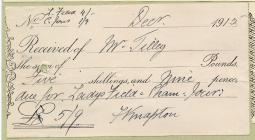 L. Field 3/-
No C. Jour 2/9 Decr. 1915
Received of Mr Tilley
The sum of Pounds
Five shillings, and Nine pence
due for Ladys Field & Cham. Jour.
£ 5/9. Knapton